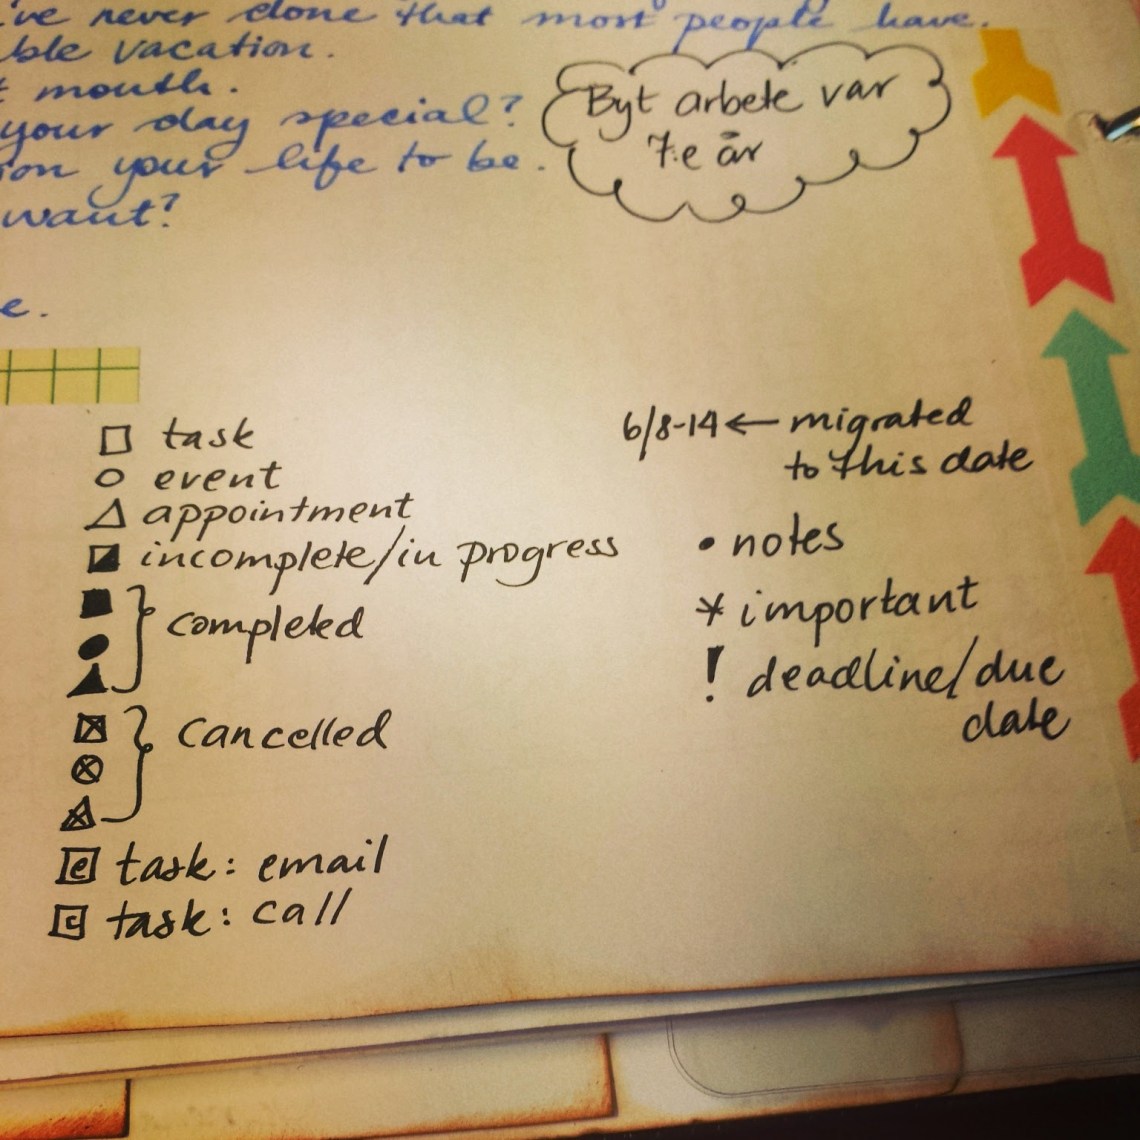 've never done that most people have.
ble vacation.
t mouth.
your day special?
ion your life to be.
want?
e.
Byt arbete var
7:e år
□ task
○ event
△ appointment
◪ incomplete/in progress
■
● completed
▲
☒
⊗ cancelled
△
e task: email
c task: call
6/8-14 ← migrated
to this date
• notes
* important
! deadline/due
date